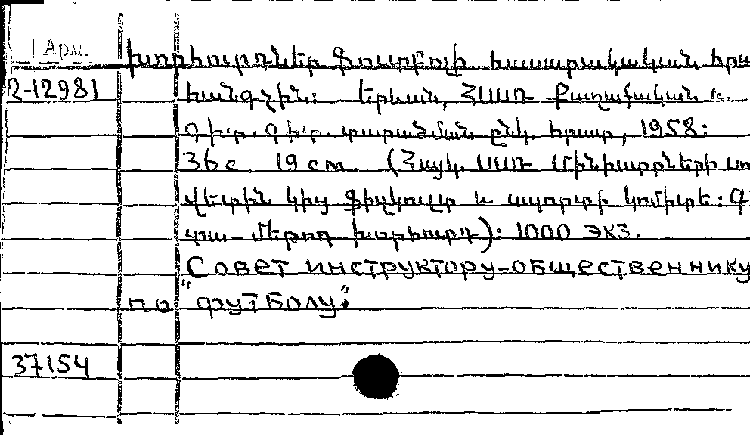 Арм.
2-12981
Խորհուրդներ Ֆուտբոլի հասարակական հրա
հանգչին: Երևան, ՀՍՍՌ Քաղաքական և
գիտ. գիտ. տարածման ընկ. հրատ, 1958:
36с 19см (Հայկ. ՍՍՌ Մինիստրների սո
վետին կից ֆիզկուլտ և սպորտի կոմիտե: Գ
կաս-մեթոդ խորհուրդ): 1000 экз.
Совет инструктору-общественнику
по "футболу".
37154